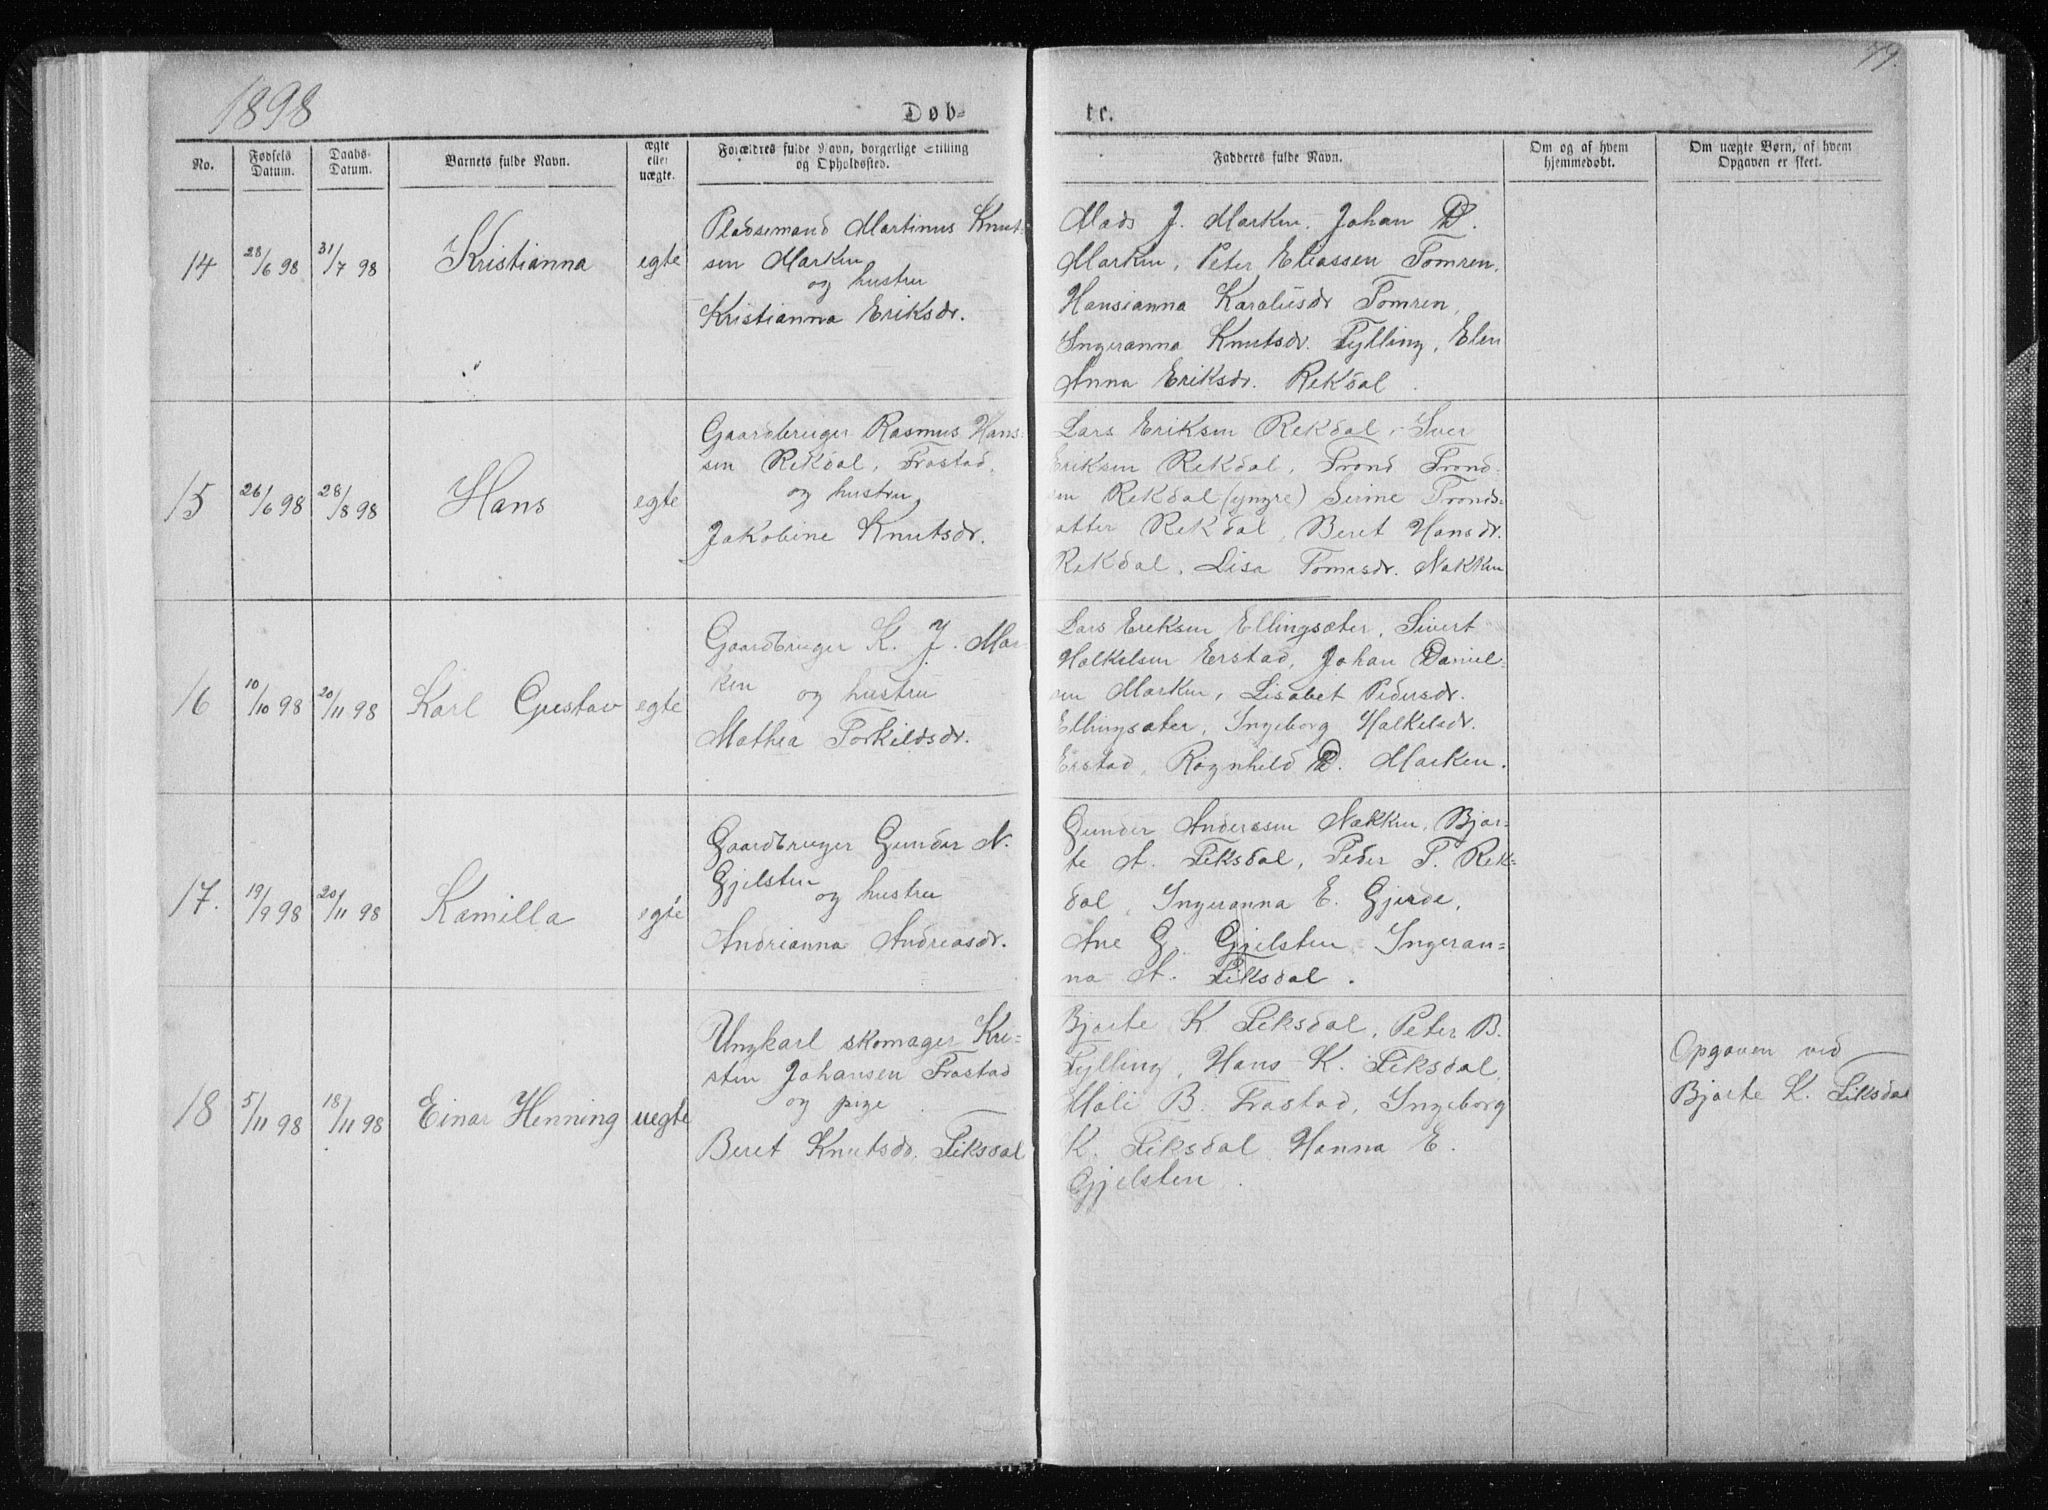 1898
Døb-
te.
No.
Fødsels Datum.
Daabs-Datum.
Barnets fulde Navn.
ægte eller uægte.
Forældres fulde Navn, borgerlige Stilling og Opholdssted.
Faddernes fulde Navn.
Om og af hvem hjemmedøbt.
Om uægte Børn, af hvem Opgaven er skeet.
14
28/6 98
31/7 98
Kristianna
egte
Pladsemand Martinus Knut-
sen Marken
og hustru
Kristianna Eriksdr.
Mads J. Marken, Johan D.
Marken, Peter Eliassen Tomren,
Hansianna Karolusdr Tomren,
Ingeranna Knutsdr. Tylling, Elen
Anna Eriksdr. Rekdal.
15
26/6 98
28/8 98
Hans
egte
Gaardbruger Rasmus Hans-
sen Rekdal, Frostad,
og hustru
Jakobine Knutsdr.
Lars Eriksen Rekdal, Iver
Eriksen Rekdal, Trond Trond-
sen Rekdal (yngre) Serine Tronds-
atter Rekdal, Beret Hansdr.
Rekdal, Lisa Tomasdr. Nakken
16
10/10 98
20/11 98
Karl Gustav
egte
Gaardbruger K. J. Mar-
ken og hustru
Mathea Torkildsdr.
Lars Eriksen Ellingsæter, Sivert
Halkelsen Erstad, Johan Daniel-
sen Marken, Lisabet Pedersdr.
Ellingsæter, Ingeborg Halkelsdr.
Erstad, Ragnhild D. Marken.
17.
19/9 98
20/11 98
Kamilla
egte
Gaardbruger Gunder N.
Gjelsten
og hustru
Andrianna Andreasdr.
Gunder Anderssen Nakken, Bjar-
te A. Fiksdal, Peder P. Rek-
dal, Ingeranna E. Gjerde,
Ane G. Gjelsten, Ingeran-
na A. Fiksdal.
18
5/11 98
18/11 98
Einar Henning
uegte
Ungkarl skomager Kri-
sten Johansen Frostad
og pige
Beret Knutsdr. Fiksdal
Bjarte K. Fiksdal, Peter B.
Tylling, Hans K. Fiksdal,
Mali B. Frostad, Ingeborg
K. Fiksdal, Hanna E.
Gjelsten.
Opgaven ved
Bjarte K. Fiksdal